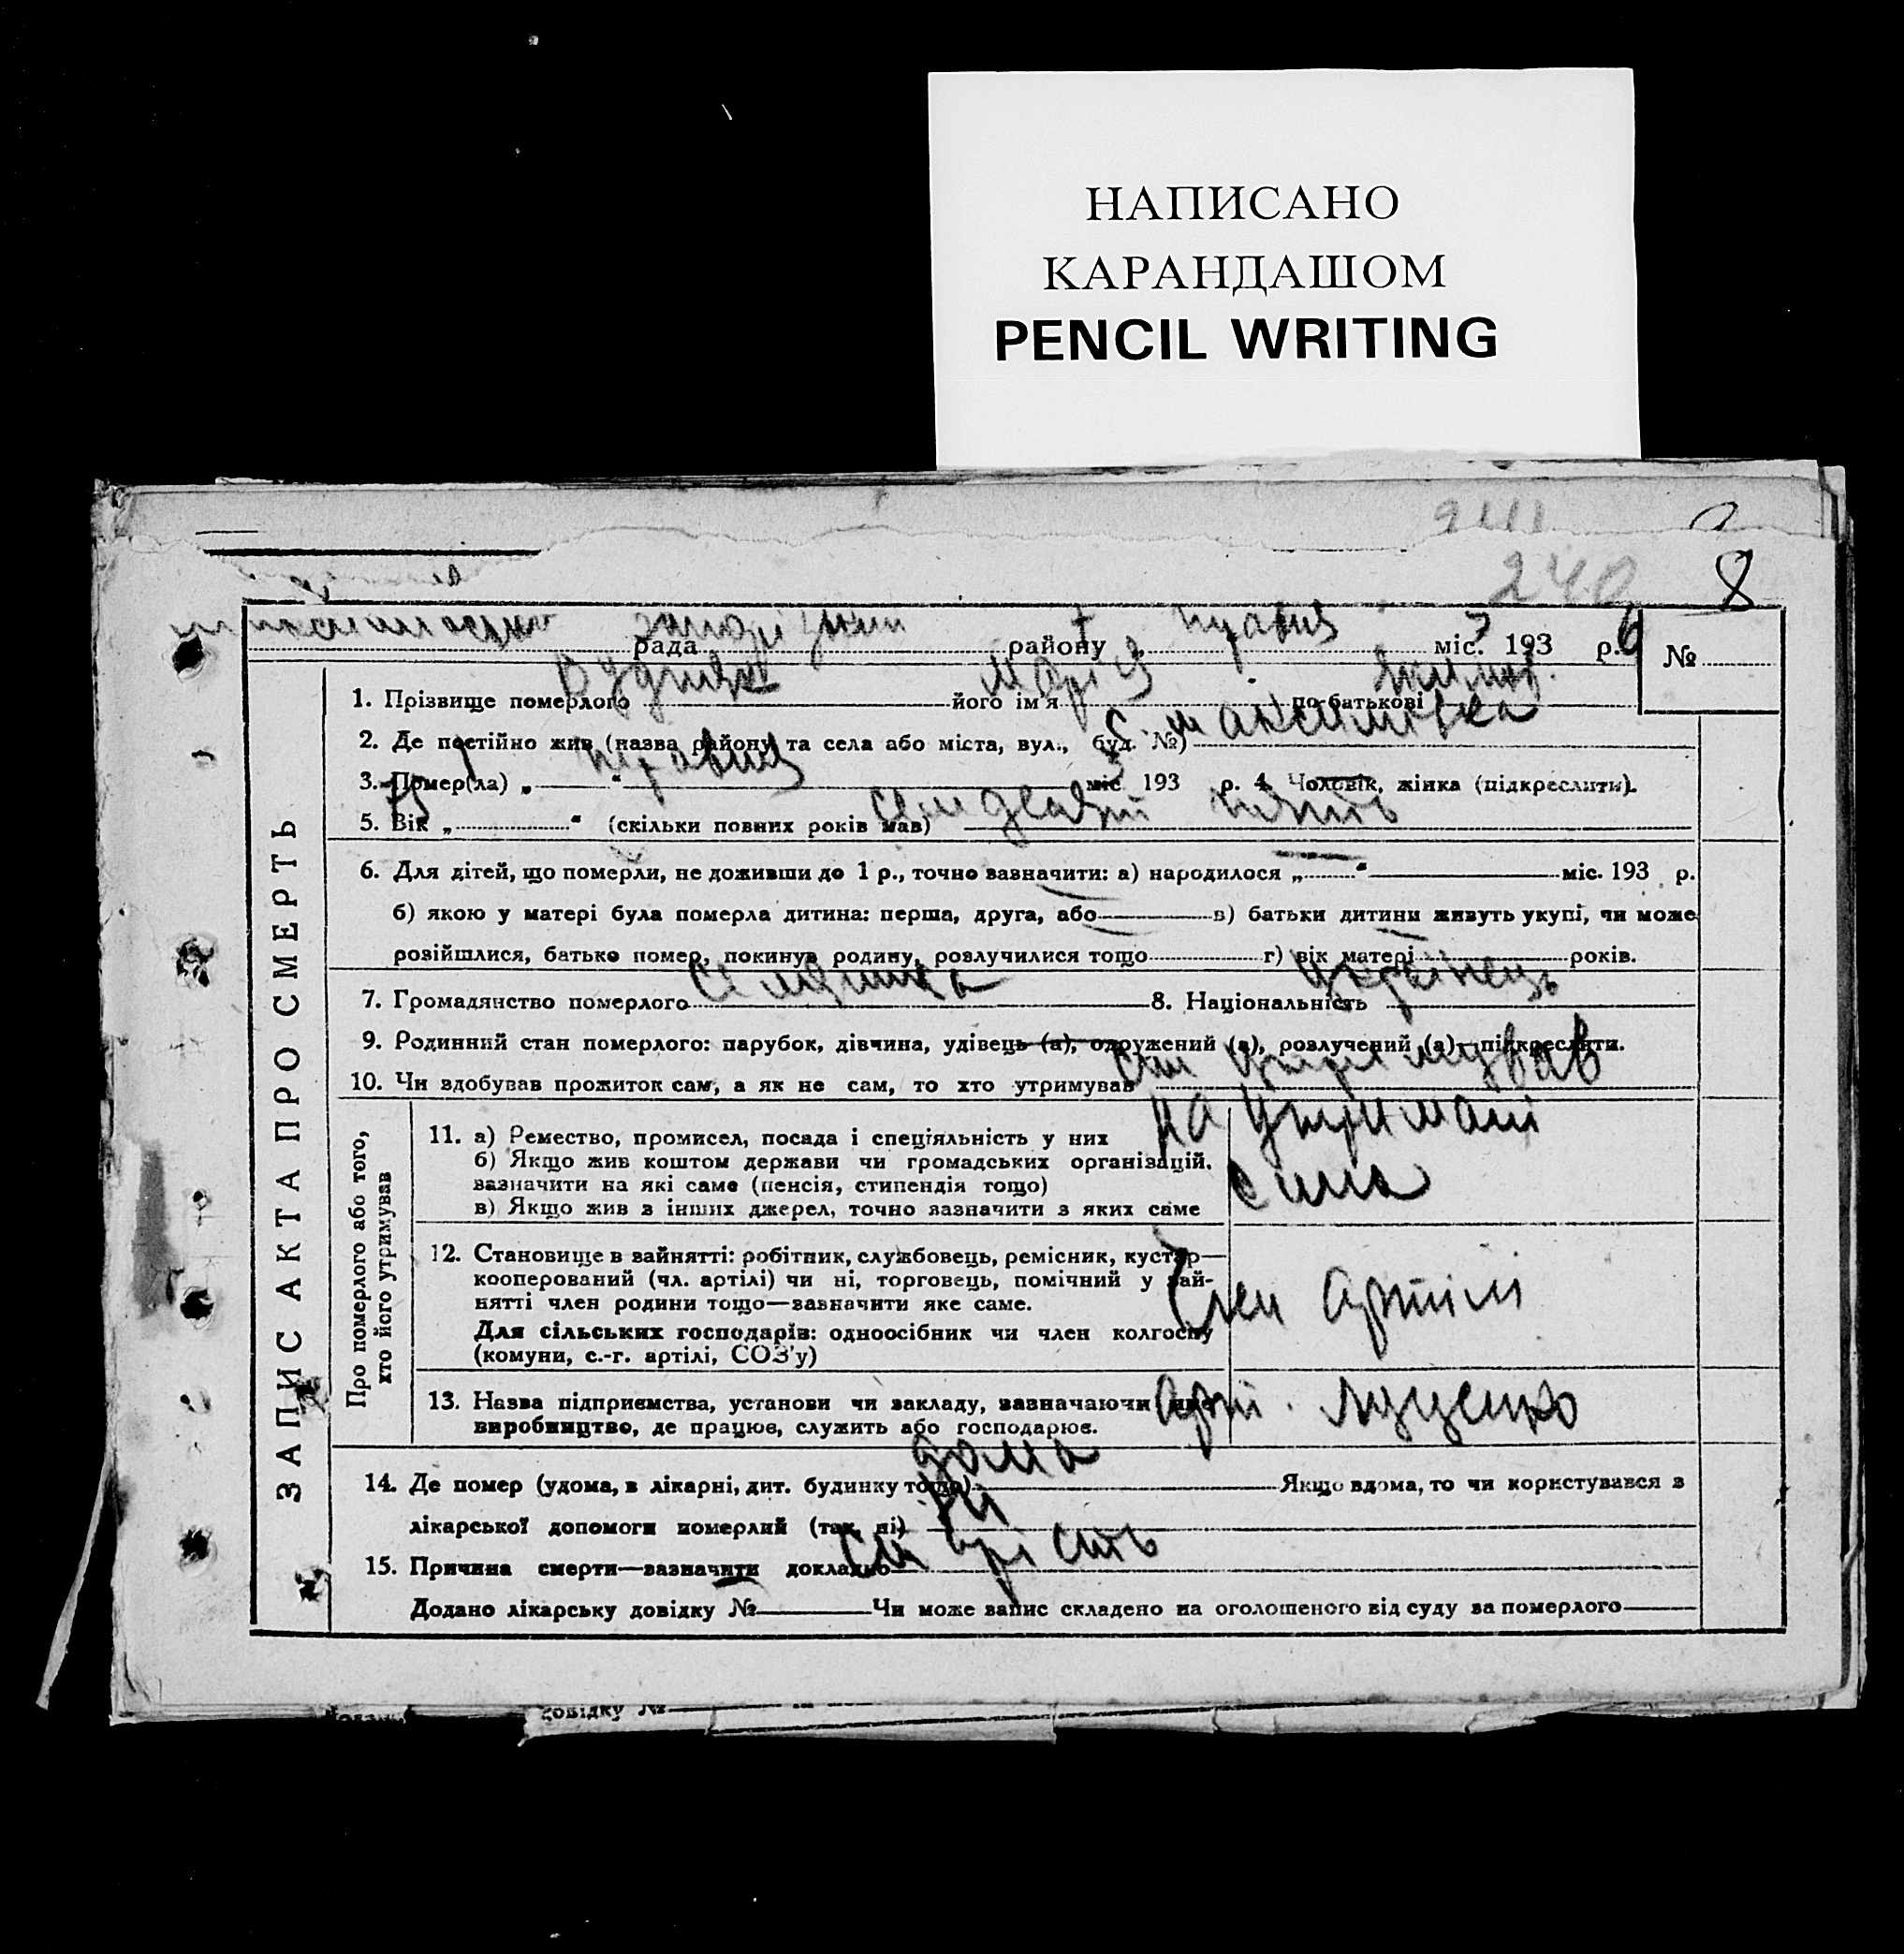 НАПИСАНО
КАРАНДАШОМ
PENCIL WRITING
240 8
рада району „ міс. 193 6 р. №
1. Прізвище померлого його ім'я Марія по батькові
2. Де постійно жив (назва району та села або міста, вул., буд. №) с. Максимовка
3. Помер(ла) „ “ травня міс. 193 р. 4. Чоловік, жінка (підкреслити).
5. Вік „ 75 “ (скільки повних років мав) пять
6. Для дітей, що померли, не доживши до 1 р., точно зазначити: а) народилося „ “ міс. 193 р.
б) якою у матері була померла дитина: перша, друга, або в) батьки дитини живуть укупі, чи може
розійшлися, батько помер, покинув родину, розлучилися тощо г) вік матері років.
7. Громадянство померлого селянка 8. Національність українець
9. Родинний стан померлого: парубок, дівчина, удівець (а), одружений (а), розлучений (а)—підкреслити.
10. Чи здобував прожиток сам, а як не сам, то хто утримував син утримував
ЗАПИС АКТА ПРО СМЕРТЬ
Про померлого або того,
хто його утримував
11. а) Ремество, промисел, посада і спеціяльність у них на утримані
б) Якщо жив коштом держави чи громадських організацій,
зазначити на які саме (пенсія, стипендія тощо) сина
в) Якщо жив з інших джерел, точно зазначити з яких саме
12. Становище в зайнятті: робітник, службовець, ремісник, кустар—
кооперований (чл. артілі) чи ні, торговець, помічний у зай-
нятті член родини тощо—зазначити яке саме. Член артілі
Для сільських господарів: одноосібник чи член колгоспу
(комуни, с.-г. артілі, СОЗ'у)
13. Назва підприємства, установи чи закладу, зазначаючи арт. Луценко
виробництво, де працює, служить або господарює.
14. Де помер (удома, в лікарні, дит. будинку тощо) дома Якщо вдома, то чи користувався з
лікарської допомоги померлий (так, ні) ні
15. Причина смерти—зазначити докладно старість
Додано лікарську довідку № Чи може запис складено на оголошеного від суду за померлого
довідку №